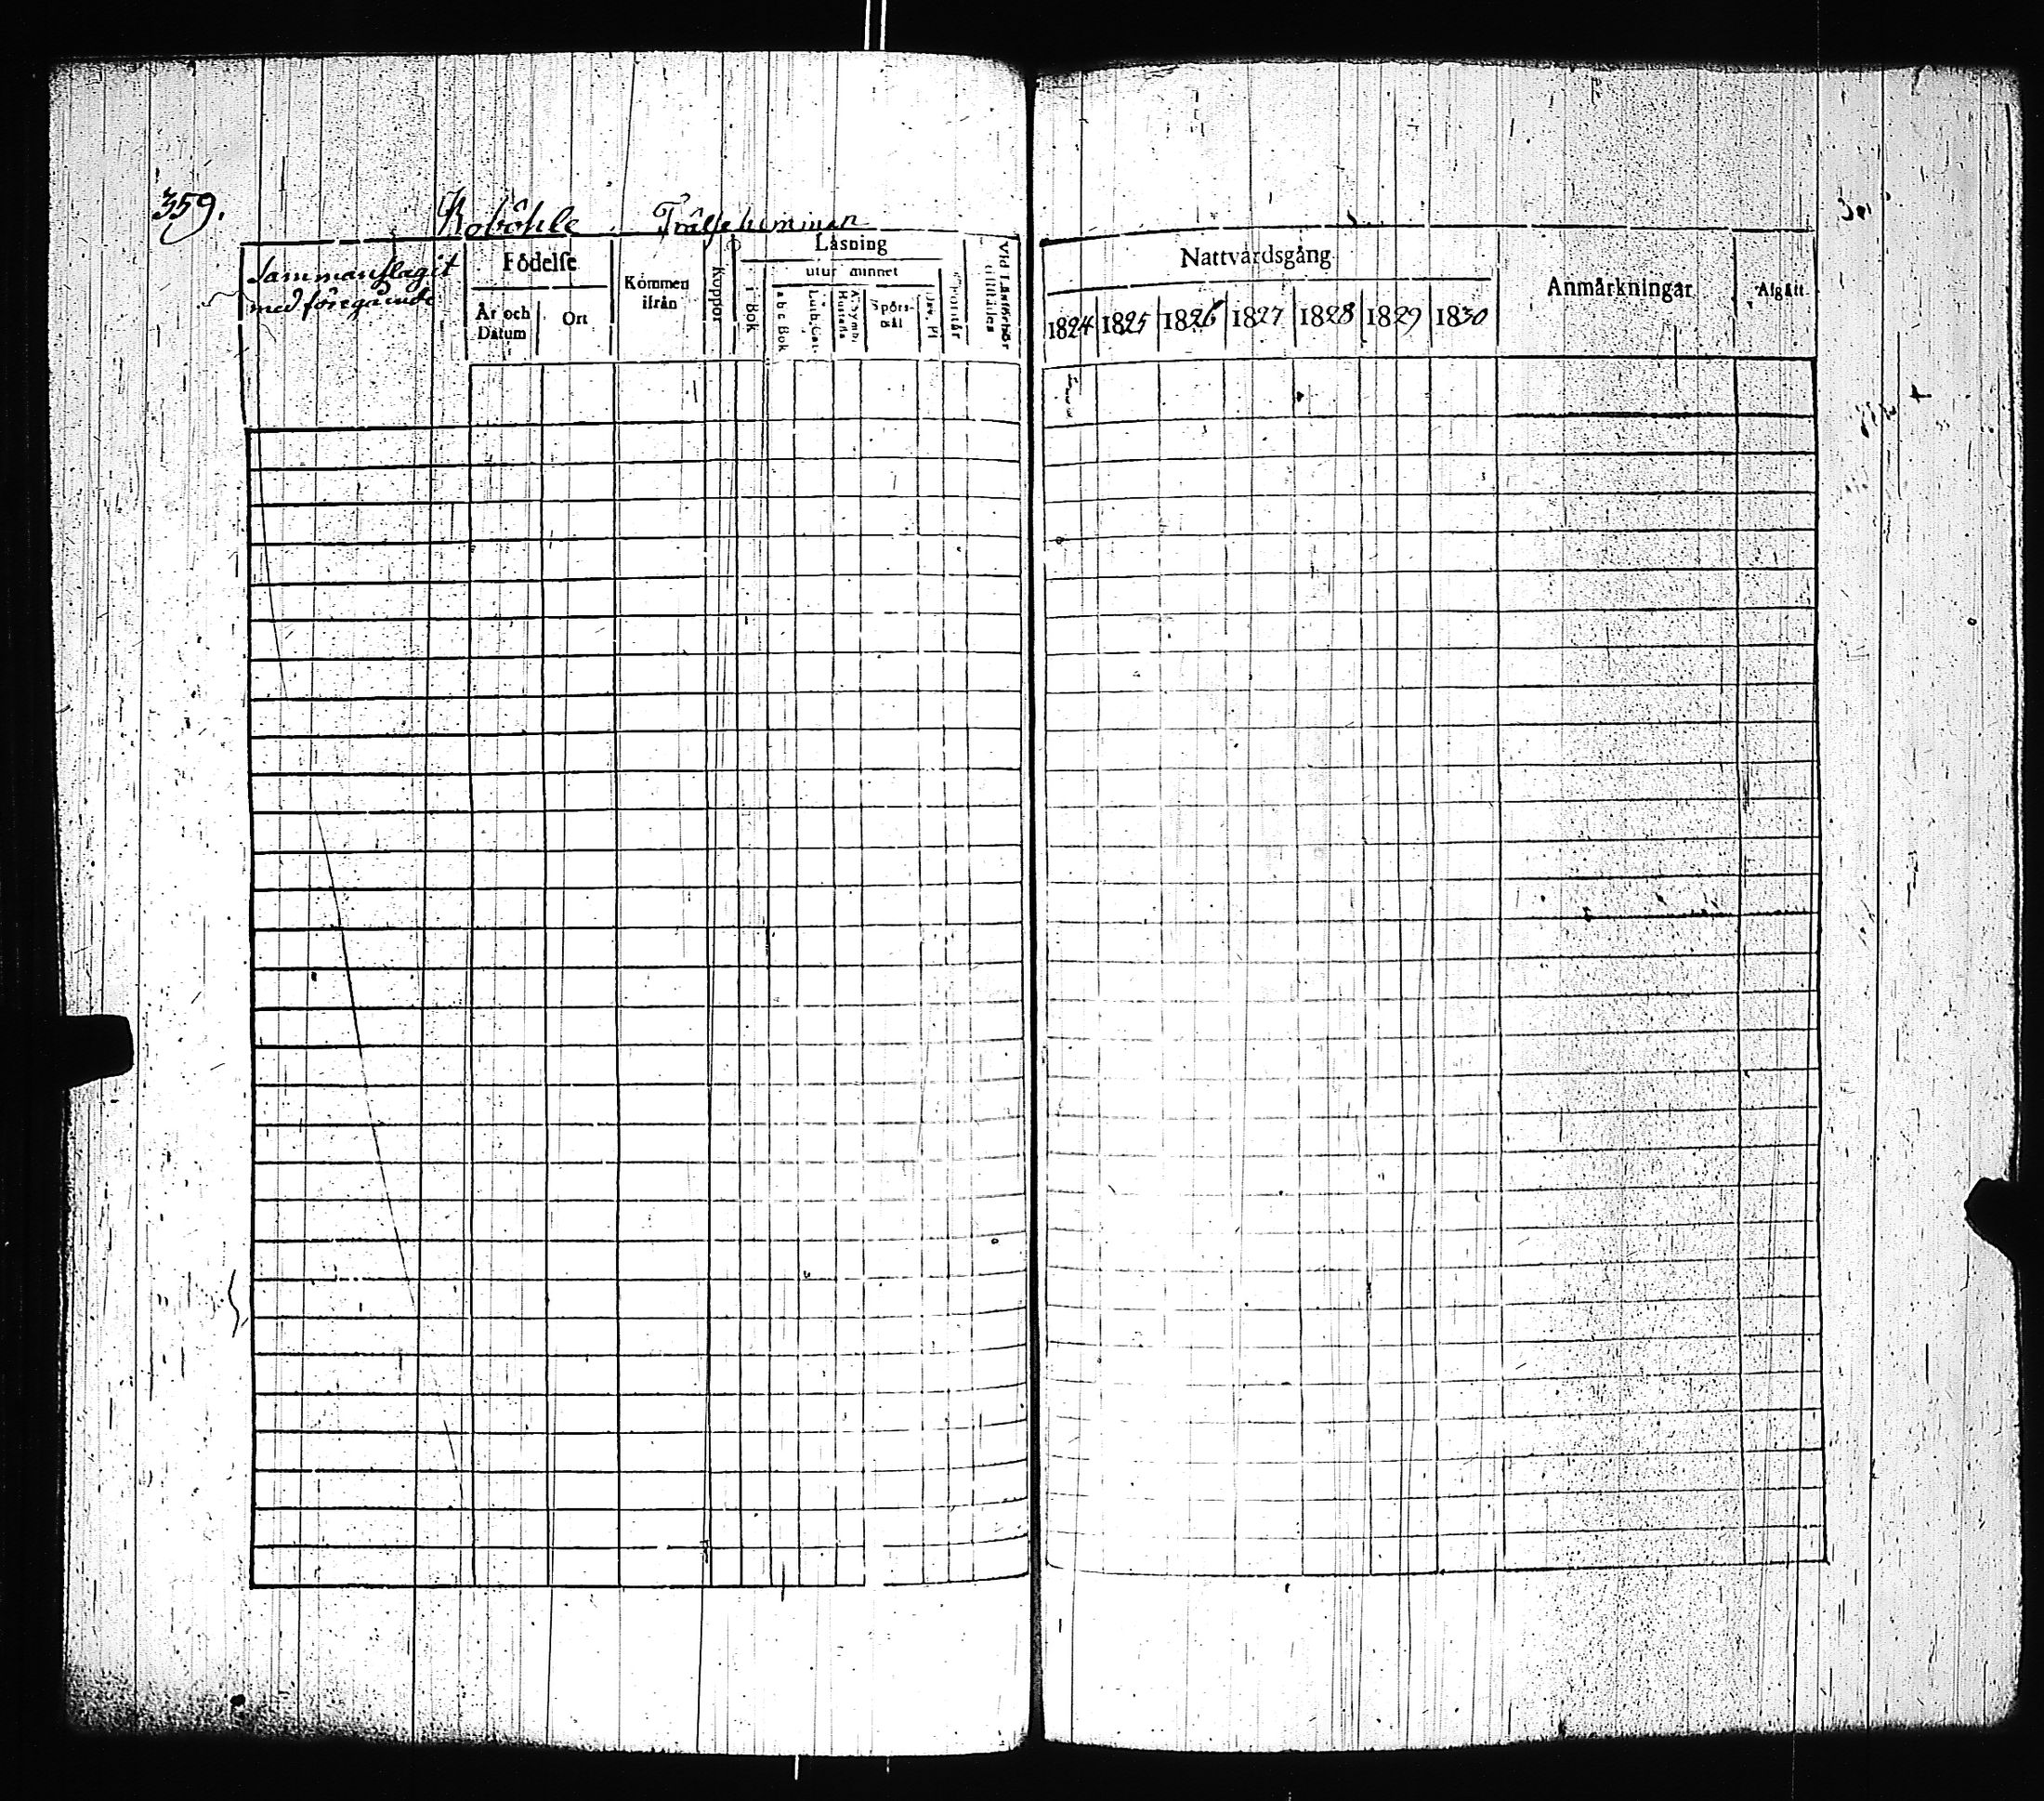 359.
Koböhle Frälsehemman
Sammanslagit
med föregående
Födelse
År och
Datum
Ort
Kommen
ifrån
Koppor
Läsning
i Bok
utur minnet
a b c Bok
Luth. Cat.
A. Symb.
Hustafla
Spörs-
mål
Dav. Ps.
Förstår
Vid Läsförhör
tillstädes
Nattvardsgång
1824 1825 1826 1827 1828 1829 1830
Anmärkningar
Afgått